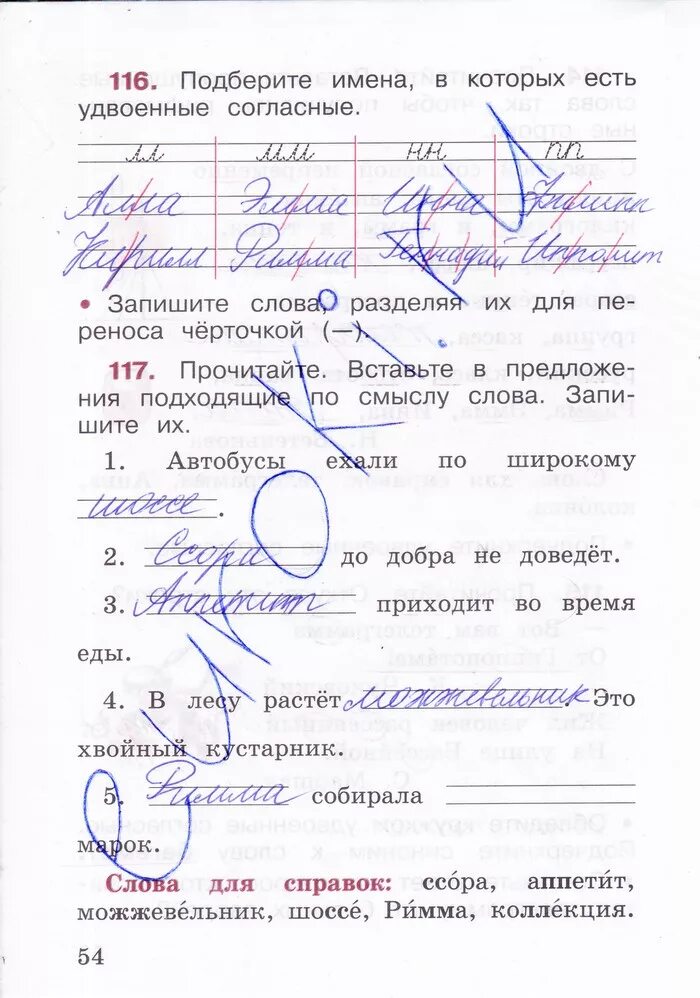 116. Подберите имена, в которых есть
удвоенные согласные.
лл мм нн пп
Алла Эмма Инна Филипп
Кирилл Римма Геннадий Ипполит
• Запишите слова, разделяя их для пе-
реноса чёрточкой (—).
117. Прочитайте. Вставьте в предложе-
ния подходящие по смыслу слова. Запи-
шите их.
1. Автобусы ехали по широкому
шоссе.
2. Ссора до добра не доведёт.
3. Аппетит приходит во время
еды.
4. В лесу растёт можжевельник. Это
хвойный кустарник.
5. Римма собирала
марок.
Слова для справок: ссо́ра, аппети́т,
можжеве́льник, шоссе́, Ри́мма, колле́кция.
54